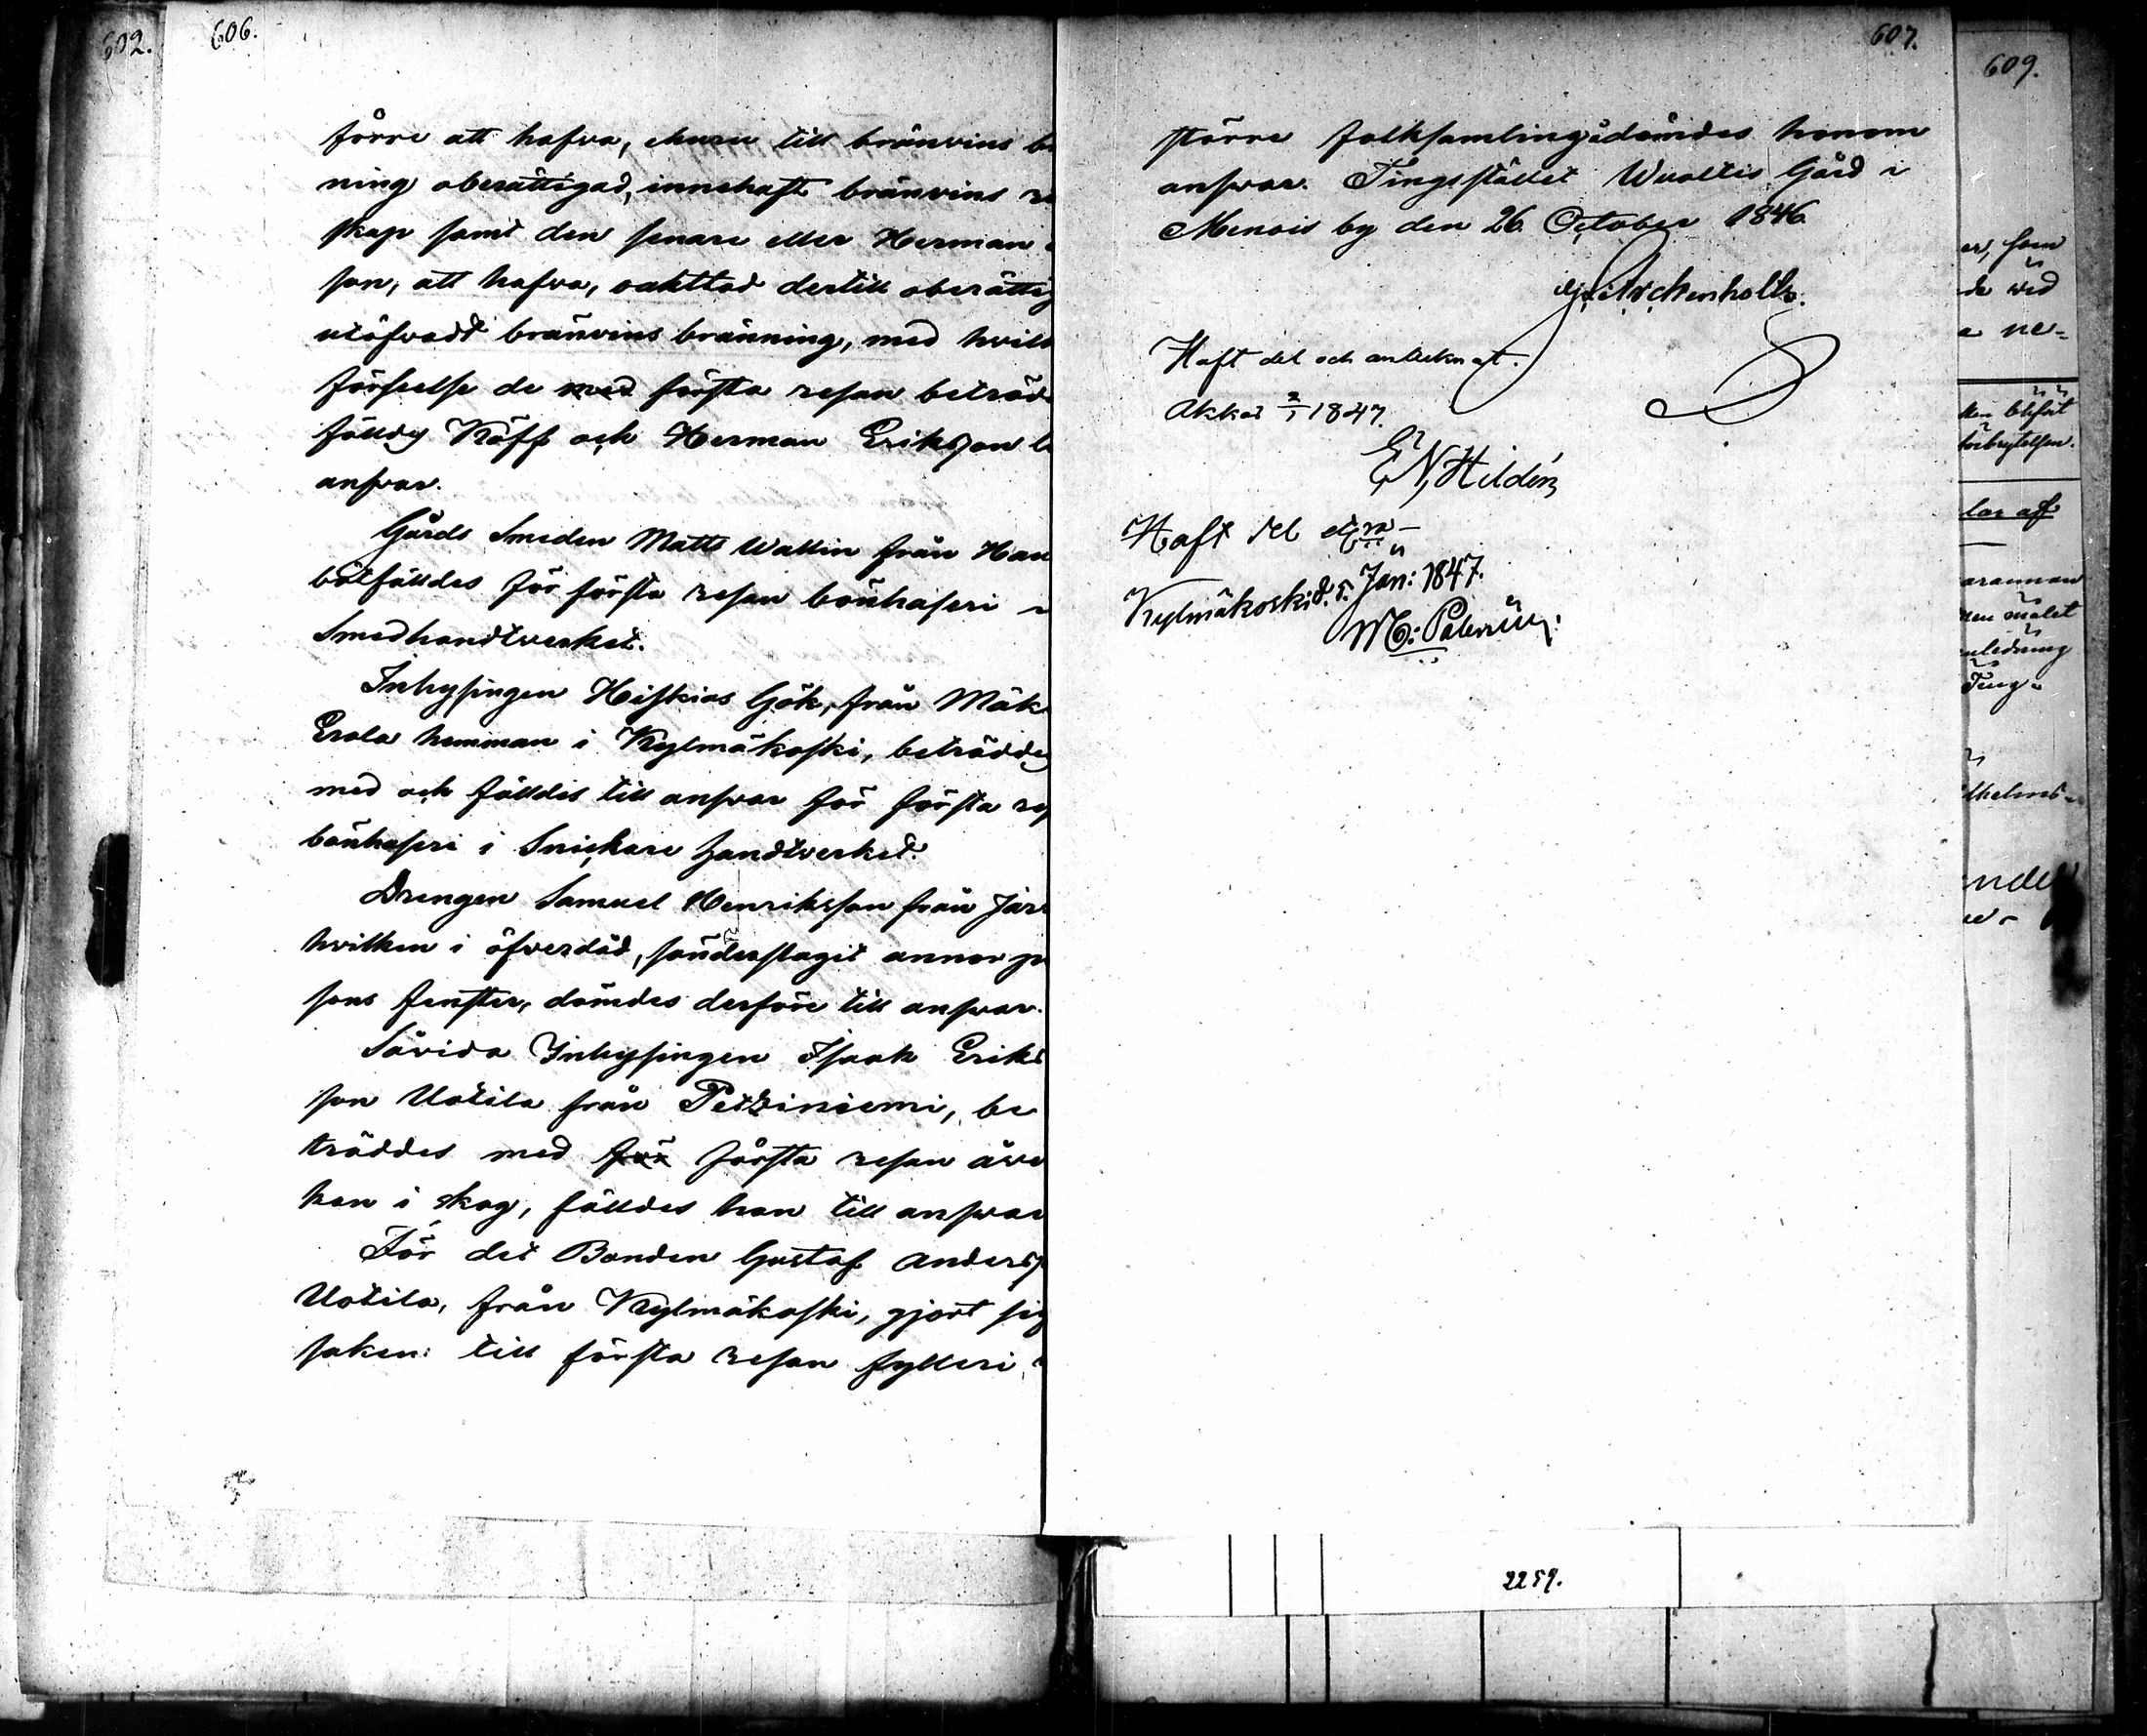 602.
606.
förre att hafva, ehuru till bränvins br
ning oberättigad, innehaft bränvins re
skap samt den senare eller Herman
son, att hafva, oaktad dertill oberättig
utöfvadt bränvins bränning, med hvilk
förseelse de med första resan beträd
fälldes Köff och Herman Eriksson
ansvar.
Gårds Smeden Matts Wallin från Han
böle fälldes för första resan bönhaseri
Smedhandtverket.
Inhysingen Hiskias Gök, från Mäk
Erola hemman i Kylmäkoski, beträddes
med och fälldes till ansvar för första re
bönhaseri i Snickare handtverket.
Drengen Samuel Henriksson från Jär
hvilken i öfverdåd, sönderslagit annor
sons fenster, dömdes derföre till ansvar.
Såvida Inhysingen Isaak Eriks
son Uotila från Petziniemi, be
träddes med för första resan åve
kan i skog, fälldes han till ansvar
För det Bonden Gustaf Anders
Uotila, från Kylmäkoski, gjort sig
saken till första resan fylleri
607.
större folksamling ådömdes honom
ansvar. Tingsstället Wualtis Gård i
Menois by den 26 October 1846.
Archenholtz.
Haft del och antecknat.
Akkas 2/1 1847.
E N Hildén
Haft del
Kylmäkoski d. 5. Jan: 1847.
609.
er, som
de wid
a ne=
ken blifvit
förbrytelsen.
lar af
arannan
nen målet
nledning
Ting=
lhelms=
ndel
2259.